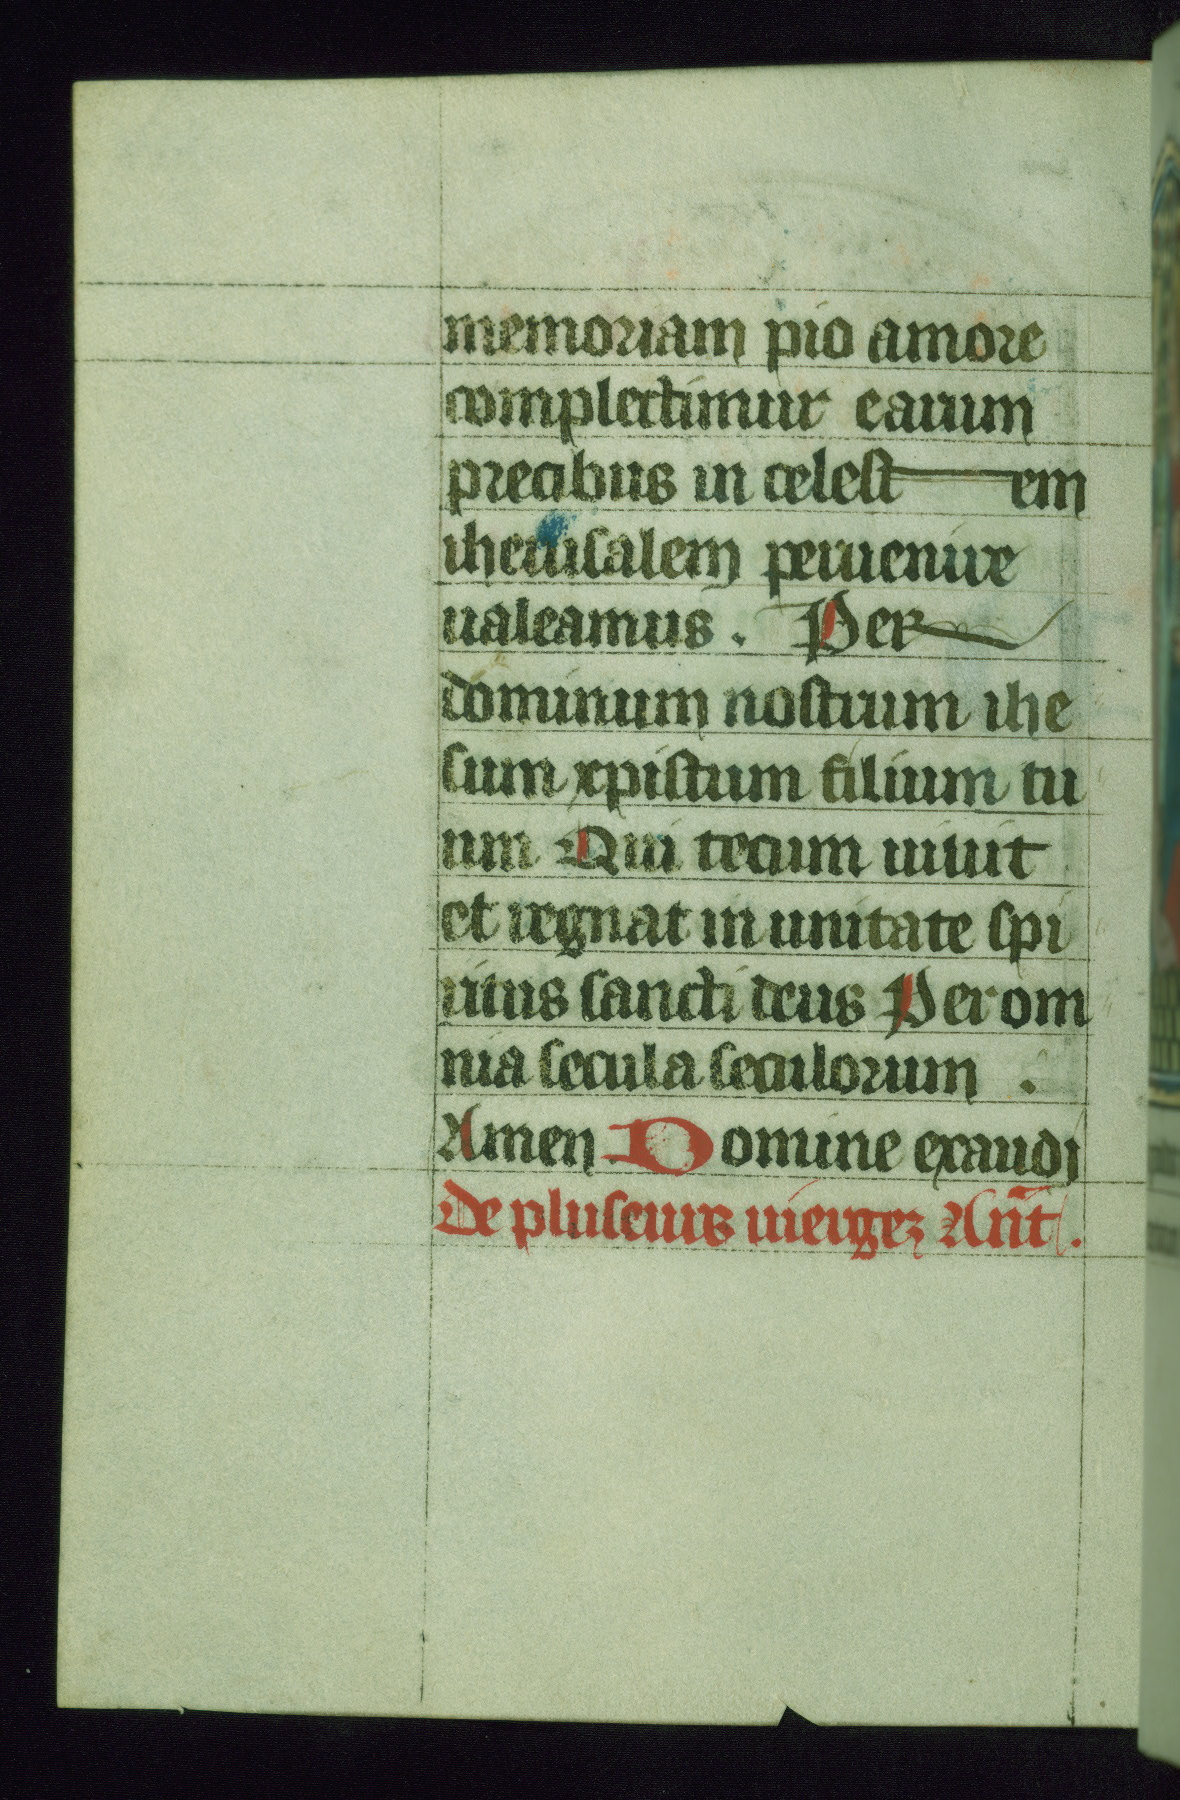 memoriam pio amore
complectimur earum
precibus in celestem
iherusalem peruenire
ualeamus . Per
dominum nostrum ihe
sum xpistum filium tu
um Qui tecum uiuit
et regnat in unitate spi
ritus sancti deus Per om
nia secula seculorum .
Amen Domine exaudi
De pluseurs uiergez Ant̄ .